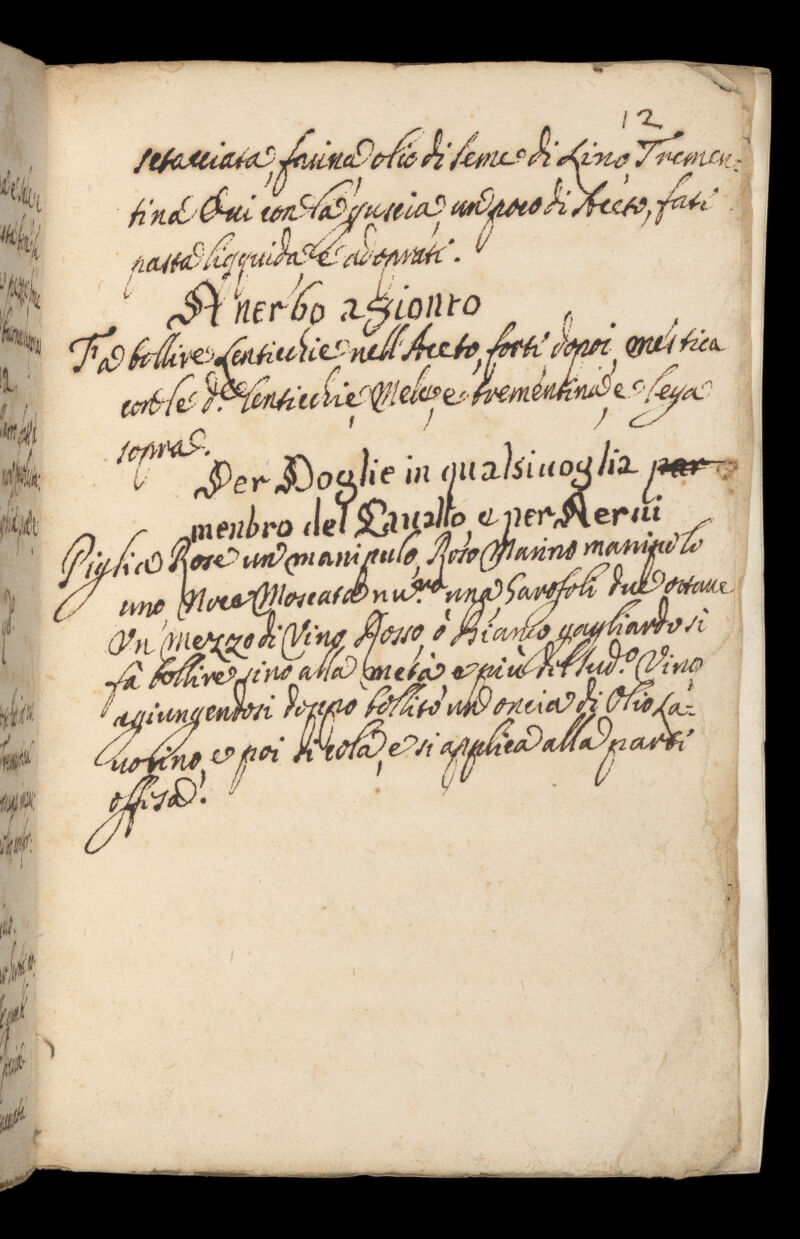 12
setacciata, farina, olio di seme di Lino, Tremen=
tina Oui con la guscia, un poco di Aceto, fati
pasta ligquida, e adoprati.
A nerbo agionto
Fa bollire Lenticchie nell'Aceto, forti dopoi, mestica
con le d.e lenticchie, Mele, e trementina, e lega
sopra.
Per Doglie in qualsiuoglia par
menbro del Cauallo e per Nerui
Piglia Rose un manipulo, Roso Marino manipolo
uno, Noce Moscata nu.ro una, Garofoli due octaue
Un mezzo di Vino Rosso, ò Biamo gagliardo si
fà bollire sino alla metà e più del sud.o Vino
agiungendosi doppo bollito un'oncia di Olio La=
uorino, e poi si cola, e si applica alla parti
offisa.